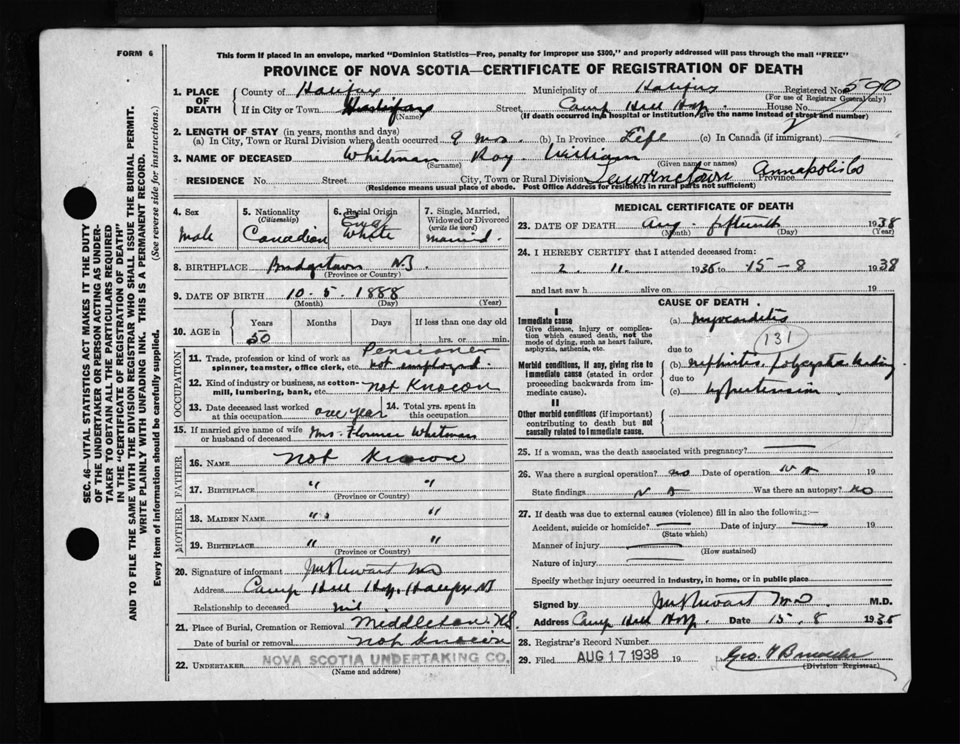 FORM 6
This form if placed in an envelope, marked "Dominion Statistics—Free, penalty for improper use $300," and properly addressed will pass through the mail "FREE"
PROVINCE OF NOVA SCOTIA—CERTIFICATE OF REGISTRATION OF DEATH
SEC. 46—VITAL STATISTICS ACT MAKES IT THE DUTY
OF THE UNDERTAKER OR PERSON ACTING AS UNDER-
TAKER TO OBTAIN ALL THE PARTICULARS REQUIRED
IN THE "CERTIFICATE OF REGISTRATION OF DEATH"
AND TO FILE THE SAME WITH THE DIVISION REGISTRAR WHO SHALL ISSUE THE BURIAL PERMIT.
WRITE PLAINLY WITH UNFADING INK. THIS IS A PERMANENT RECORD.
Every item of information should be carefully supplied. (See reverse side for instructions.)
1. PLACE OF DEATH County of Halifax Municipality of Halifax Registered No. 590
(For use of Registrar General only)
If in City or Town Halifax (Name) Street Camp Hill Hosp. House No.
(If death occurred in a hospital or institution, give the name instead of street and number)
2. LENGTH OF STAY (in years, months and days)
(a) In City, Town or Rural Division where death occurred 9 mos. (b) In Province Life (c) In Canada (if immigrant)
3. NAME OF DECEASED Whitman Roy William
(Surname) (Given name or names)
RESIDENCE No. Street City, Town or Rural Division Lawrencetown Province Annapolis Co
(Residence means usual place of abode. Post Office Address for residents in rural parts not sufficient)
4. Sex Male
5. Nationality (Citizenship) Canadian
6. Racial Origin Eng White
7. Single, Married, Widowed or Divorced (write the word) Married.
8. BIRTHPLACE Bridgetown N.S.
(Province or Country)
9. DATE OF BIRTH 10 - 5 - 1888
(Month) (Day) (Year)
10. AGE in Years Months Days If less than one day old
50 hrs. or min.
OCCUPATION
11. Trade, profession or kind of work as spinner, teamster, office clerk, etc. Pensioner not employed
12. Kind of industry or business, as cotton-mill, lumbering, bank, etc. not known
13. Date deceased last worked at this occupation one year 14. Total yrs. spent in this occupation
15. If married give name of wife or husband of deceased Mrs. Florence Whitman
FATHER
16. NAME not known
17. BIRTHPLACE " "
(Province or Country)
MOTHER
18. MAIDEN NAME " "
19. BIRTHPLACE " "
(Province or Country)
20. Signature of informant
Address Camp Hill Hosp. Halifax NS
Relationship to deceased nil
21. Place of Burial, Cremation or Removal Middleton N.S.
Date of burial or removal not known
22. UNDERTAKER NOVA SCOTIA UNDERTAKING CO.
(Name and address)
MEDICAL CERTIFICATE OF DEATH
23. DATE OF DEATH Aug fifteenth 1938
(Month) (Day) (Year)
24. I HEREBY CERTIFY that I attended deceased from:
2. 11. 1936 to 15-8 1938
and last saw h alive on 19
CAUSE OF DEATH
I
Immediate cause (a) Myocarditis
Give disease, injury or complication which caused death, not the mode of dying, such as heart failure, asphyxia, asthenia, etc.
131
due to
Morbid conditions, if any, giving rise to immediate cause (stated in order proceeding backwards from immediate cause). (b) nephritis,
due to
(c) hypertension
II
Other morbid conditions (if important) contributing to death but not causally related to immediate cause.
25. If a woman, was the death associated with pregnancy?
26. Was there a surgical operation? no Date of operation 19
State findings Was there an autopsy? no
27. If death was due to external causes (violence) fill in also the following:—
Accident, suicide or homicide? Date of injury 19
(State which)
Manner of injury
(How sustained)
Nature of injury
Specify whether injury occurred in industry, in home, or in public place
Signed by M.D. M.D.
Address Camp Hill Hosp. Date 15. 8 1938
28. Registrar's Record Number
29. Filed AUG 17 1938 19
(Division Registrar)